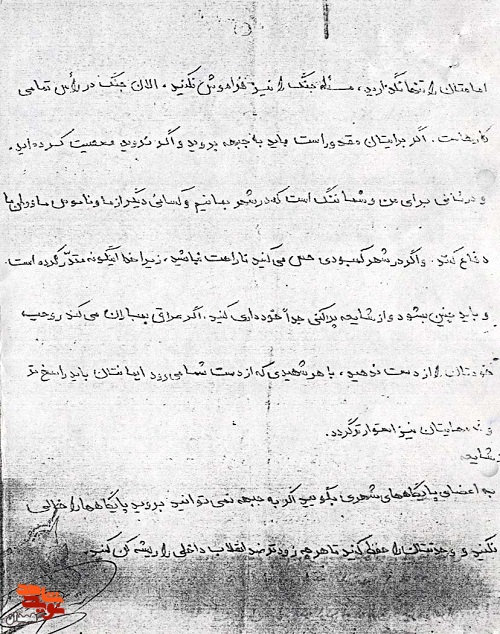 امامتان را تنها نگذارید، مسئله جنگ را نیز فراموش نکنید، الان جنگ در رأس تمامی
کارهاست. اگر برایتان مقدور است باید به جبهه بروید و اگر نروید معصیت کرده‌اید.
و در ثانی برای من و شما ننگ است که در شهر بمانیم و کسانی دیگر از ما و ناموس ما دفاع
دفاع کنند. و اگر در شهر کمبودی حس می‌کنید ناراحت نباشید، زیرا خدا اینگونه مقدر کرده است.
و باید چنین بشود و از شایعه پراکنی جداً خودداری کنید. اگر عراق بمباران می‌کند روحیه
خودتان را از دست ندهید، با هر شهیدی که از دست شما می‌رود ایمانتان باید راسخ تر
و نیز استوارتر گردد.
شایعه
به اعضای پایگاههای شهری بگویید اگر به جبهه نمی‌توانید بروید پایگاهها را خالی
نکنید و وحدتتان را حفظ کنید تا هر چه زودتر ضد انقلاب داخلی را ریشه کن کنید.